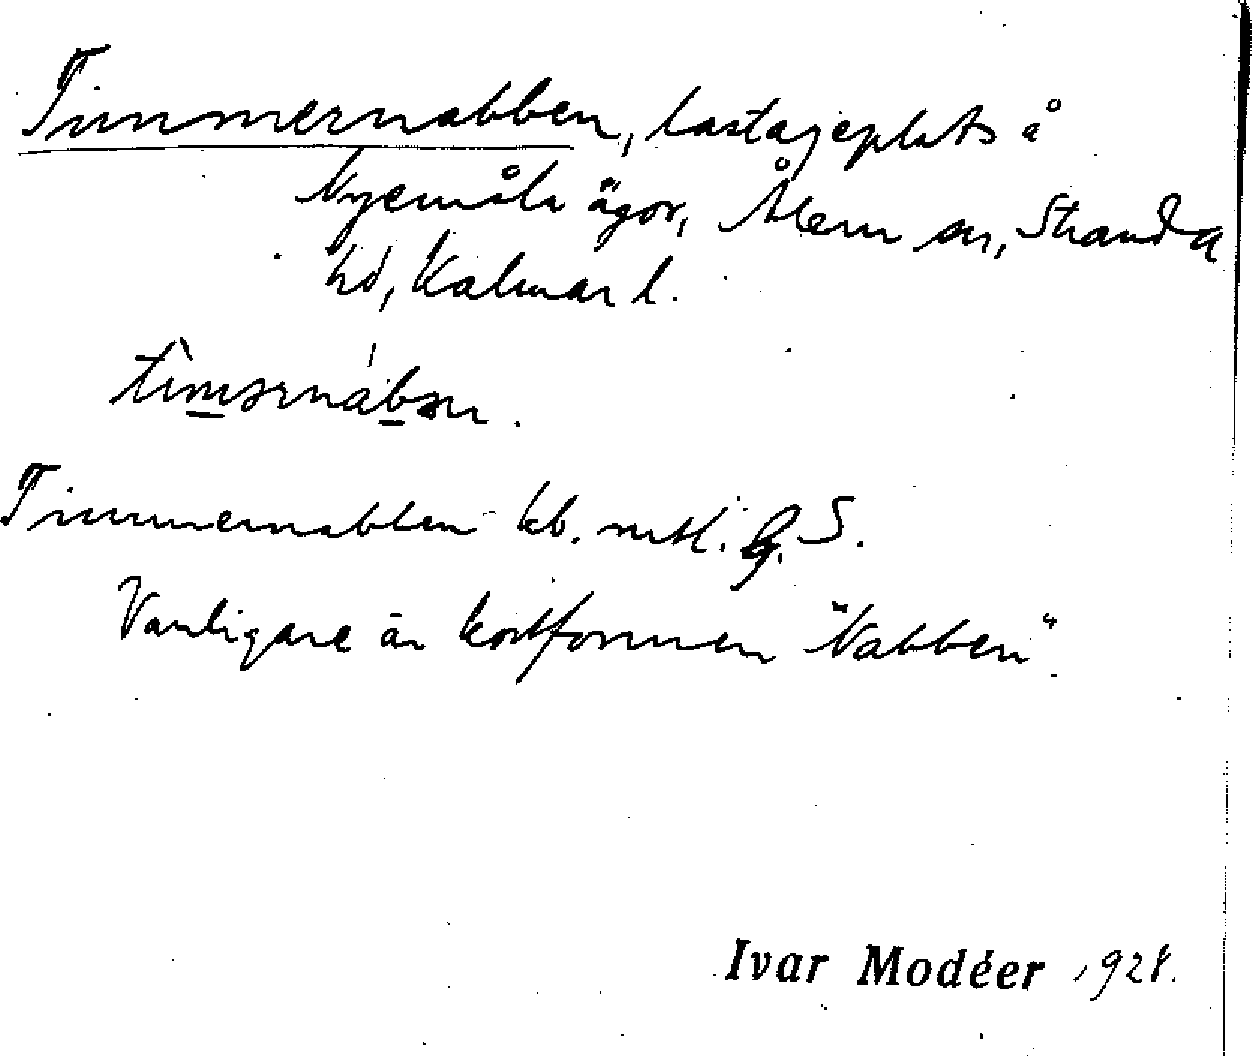 Timmernabben, lastageplats å
Nyemåla ägor, Ålem sn, Stranda
hd, Kalmar l.
Timmernabben kb. mtl. G. S.
Vanligare är kortformen "Nabben".
Ivar Modéer 1928.